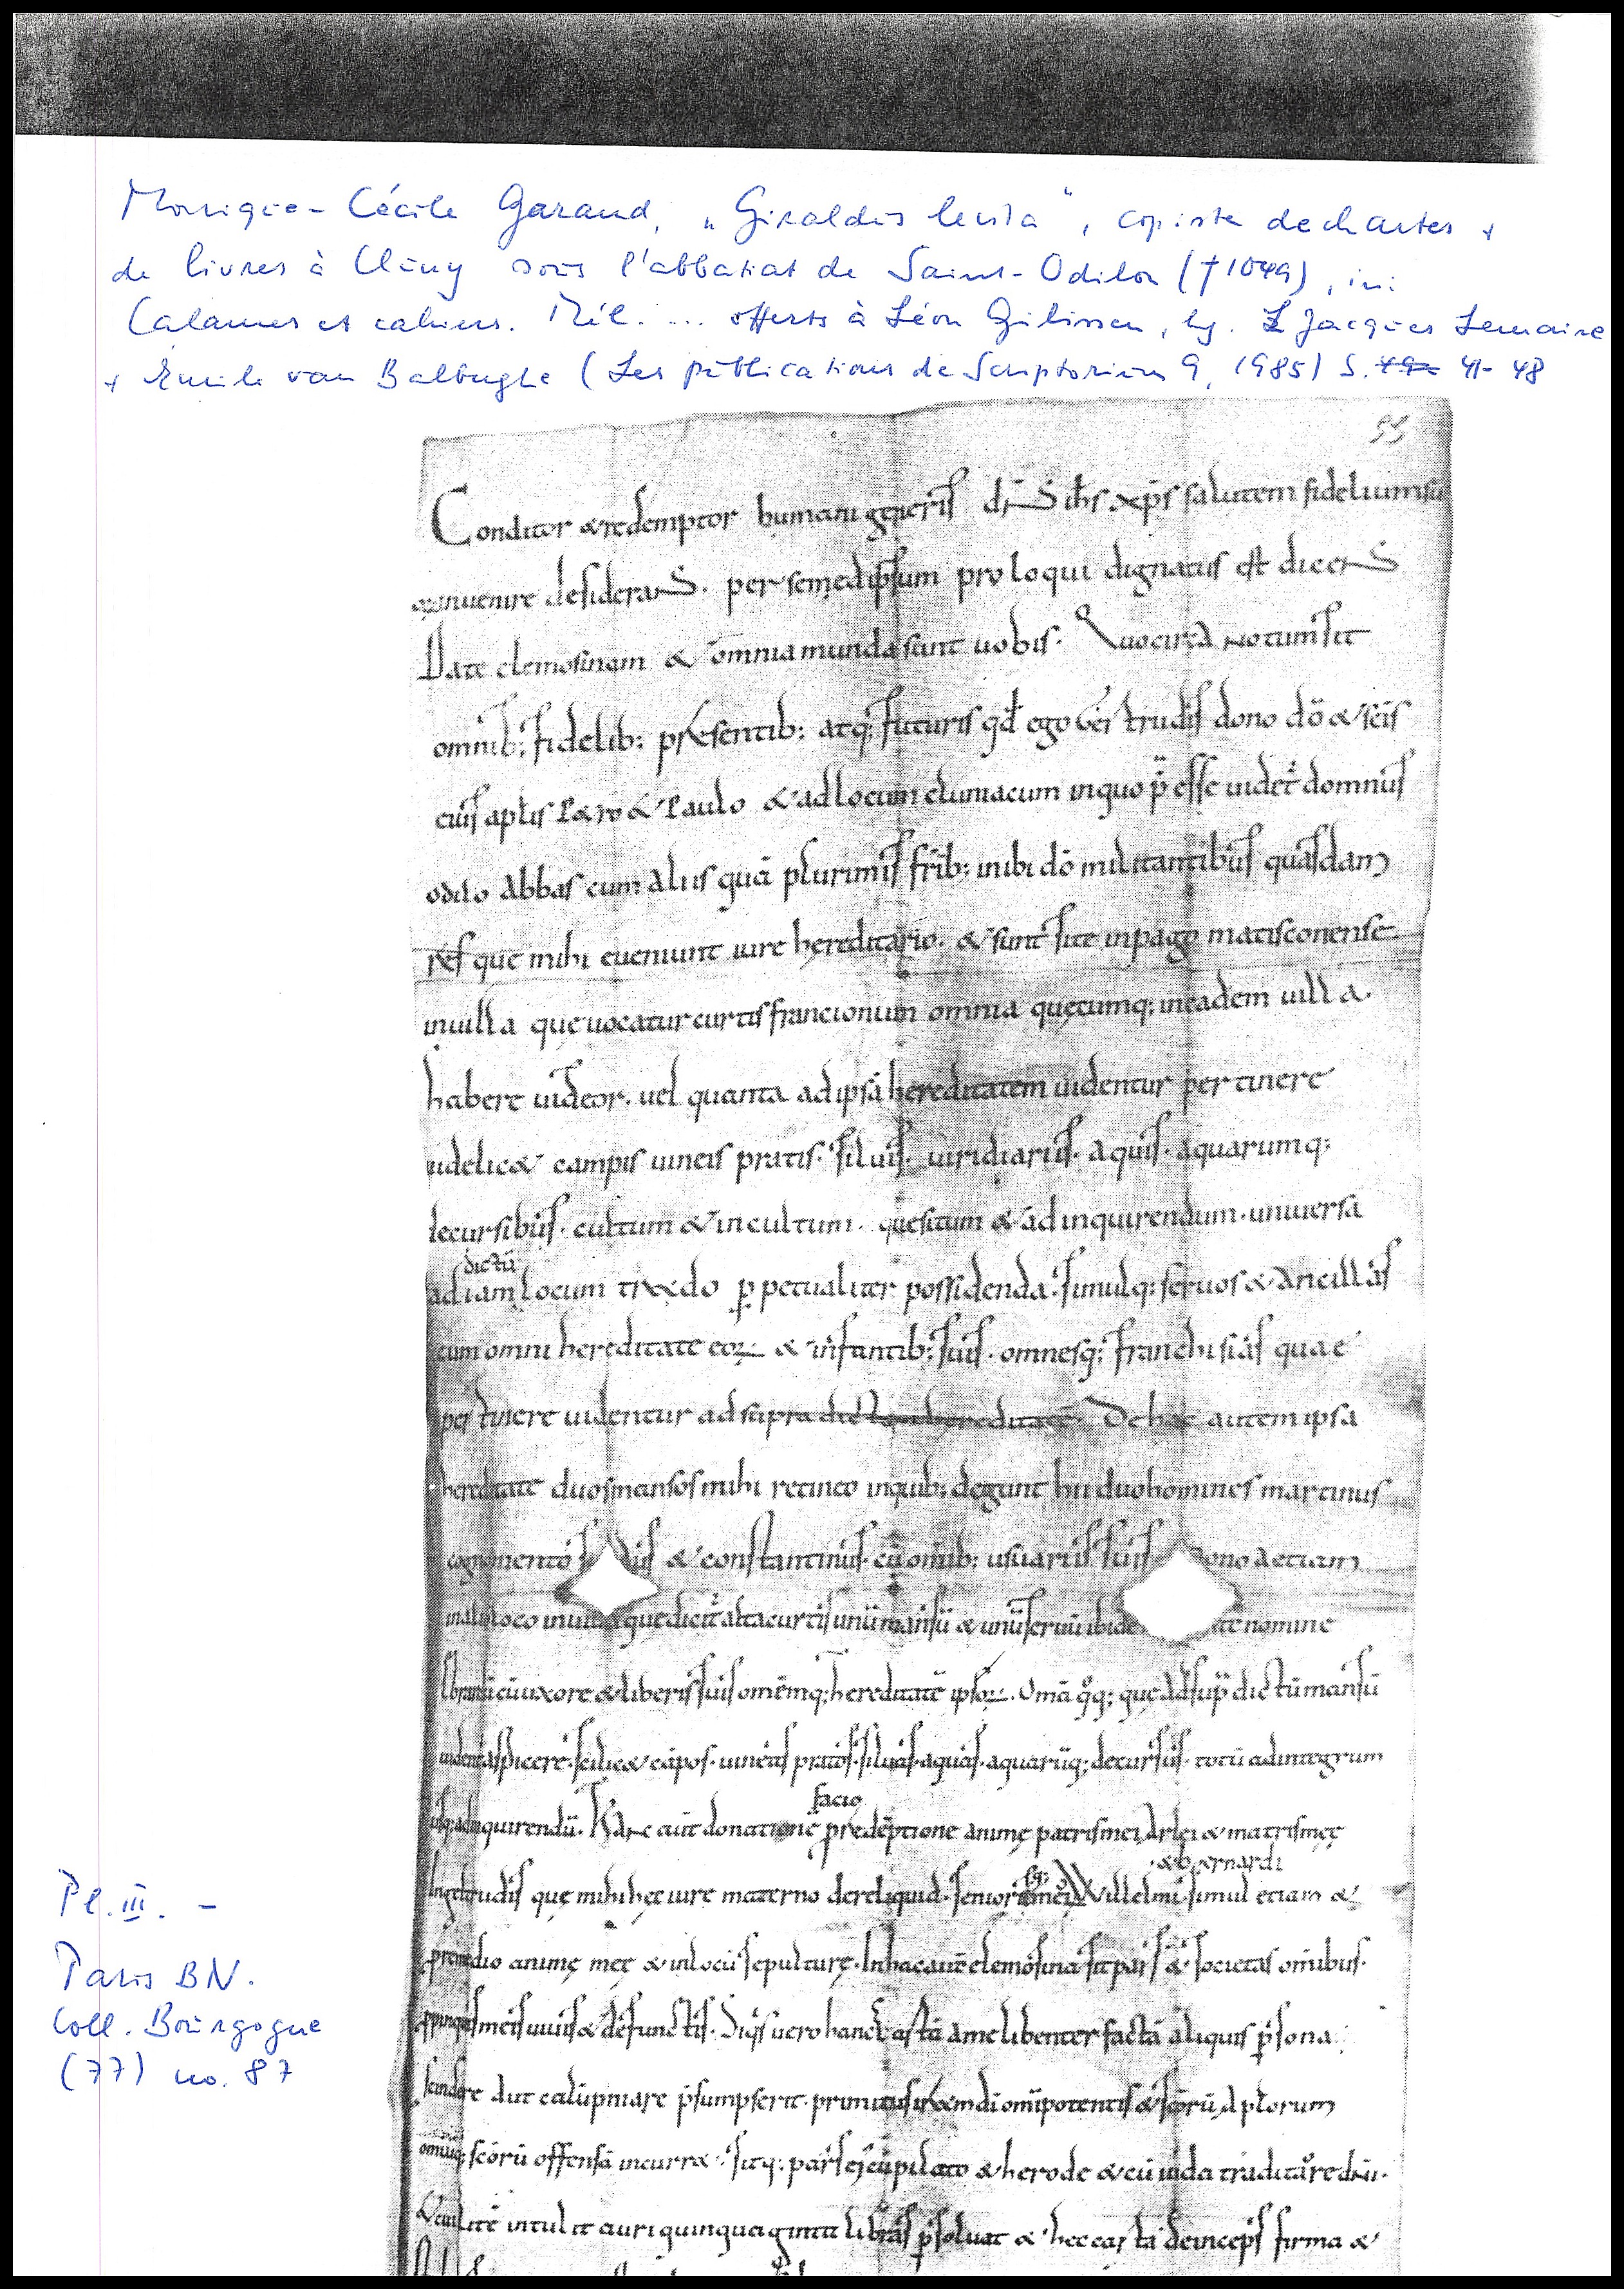 Monique-Cécile Garand, „Giraldus levita", copiste de chartes +
de livres à Cluny sous l'abbatiat de Saint-Odilon († 1049), in:
Calames et cahiers. Mél. ... offerts à Léon Gilissen, hg. Jacques Lemaire
+ Emile van Balberghe (Les publications de Scriptorium 9, 1985) S. 41-48
55
Conditor & redemptor humani generis dn̄S ih̄s xp̄s salutem fidelium
inuenire desideranS. per semedipsum proloqui dignatus est dicenS
Date elemosinam & omnia munda sunt uobis. Quocirca notum sit
omnib; fidelib; presentib; atq; futuris qd̄ ego trudis dono dō & sc̄is
eius aplis P&ro & Paulo & ad locum cluniacum in quo p̄ esse uidet᷑ domnus
odilo abbas cum aliis quā plurimis fr̄ib; inibi dō militantibus quasdam
res que mihi eueniunt iure hereditario. & sunt site in pago matisconense
in uilla que uocatur curtis francionum omnia quecumq; in eadem uilla.
habere uideor. uel quanta ad ipsā hereditatem uidentur pertinere
uidelic& campis uineis pratis. siluis. uiridiariis. aquis. aquarumq;
decursibus. cultum & incultum. quesitum & ad inquirendum. uniuersa
dictū
ad iam locum trado ꝑpetualiter possidenda. simulq; seruos & ancillas
cum omni hereditate eoꝝ & infantib; suis. omnesq; franchisias quae
pertinere uidentur ad supradictam hereditatē. De hac autem ipsa
hereditate duos mansos mihi retineo in quib; degunt hii duo homines martinus
cognomento & constantinus. cū omīb; usuariis suis dono & etiam
in alio loco in uilla que dicit᷑ alta curtis unū mansū & unū seruū ibidē nomine
cū uxore & liberis suis omēmq; hereditatē ipsoꝝ. Omā qq; que ad sup̄dictū mansū
uident᷑ aspicere. scilic& cāpos. uineas pratos. siluas. aquas. aquarūq; decursus. totū ad integrum
facio
inquirendū. Hanc aūt donationē p̄ redēptione anime patris mei Arlei & matris mee
& bernardi
Ingeltrudis que mihi hec iure materno dereliquid. senioris mei Willelmi. simul etiam &
remedio anime mee & in locū sepulture. In hac aūt elemosina sit pars & societas omībus.
meis uiuis & defunctis. Siqs uero hanc cartā a me libenter factā aliquis ꝑsona
aut calūpniare p̄sumpserit. primitus irā dī omīpotentis & sc̄orū aplorum
omīuq; sc̄orū offensā incurra&. sitq; pars ej cū pilato & herode & cū iuda traditore dnī.
litē intulit auri quinquaginta libras ꝑsoluat & hec carta deinceps firma &
Pl. III. -
Paris BN.
Coll. Bourgogne
(77) no. 87